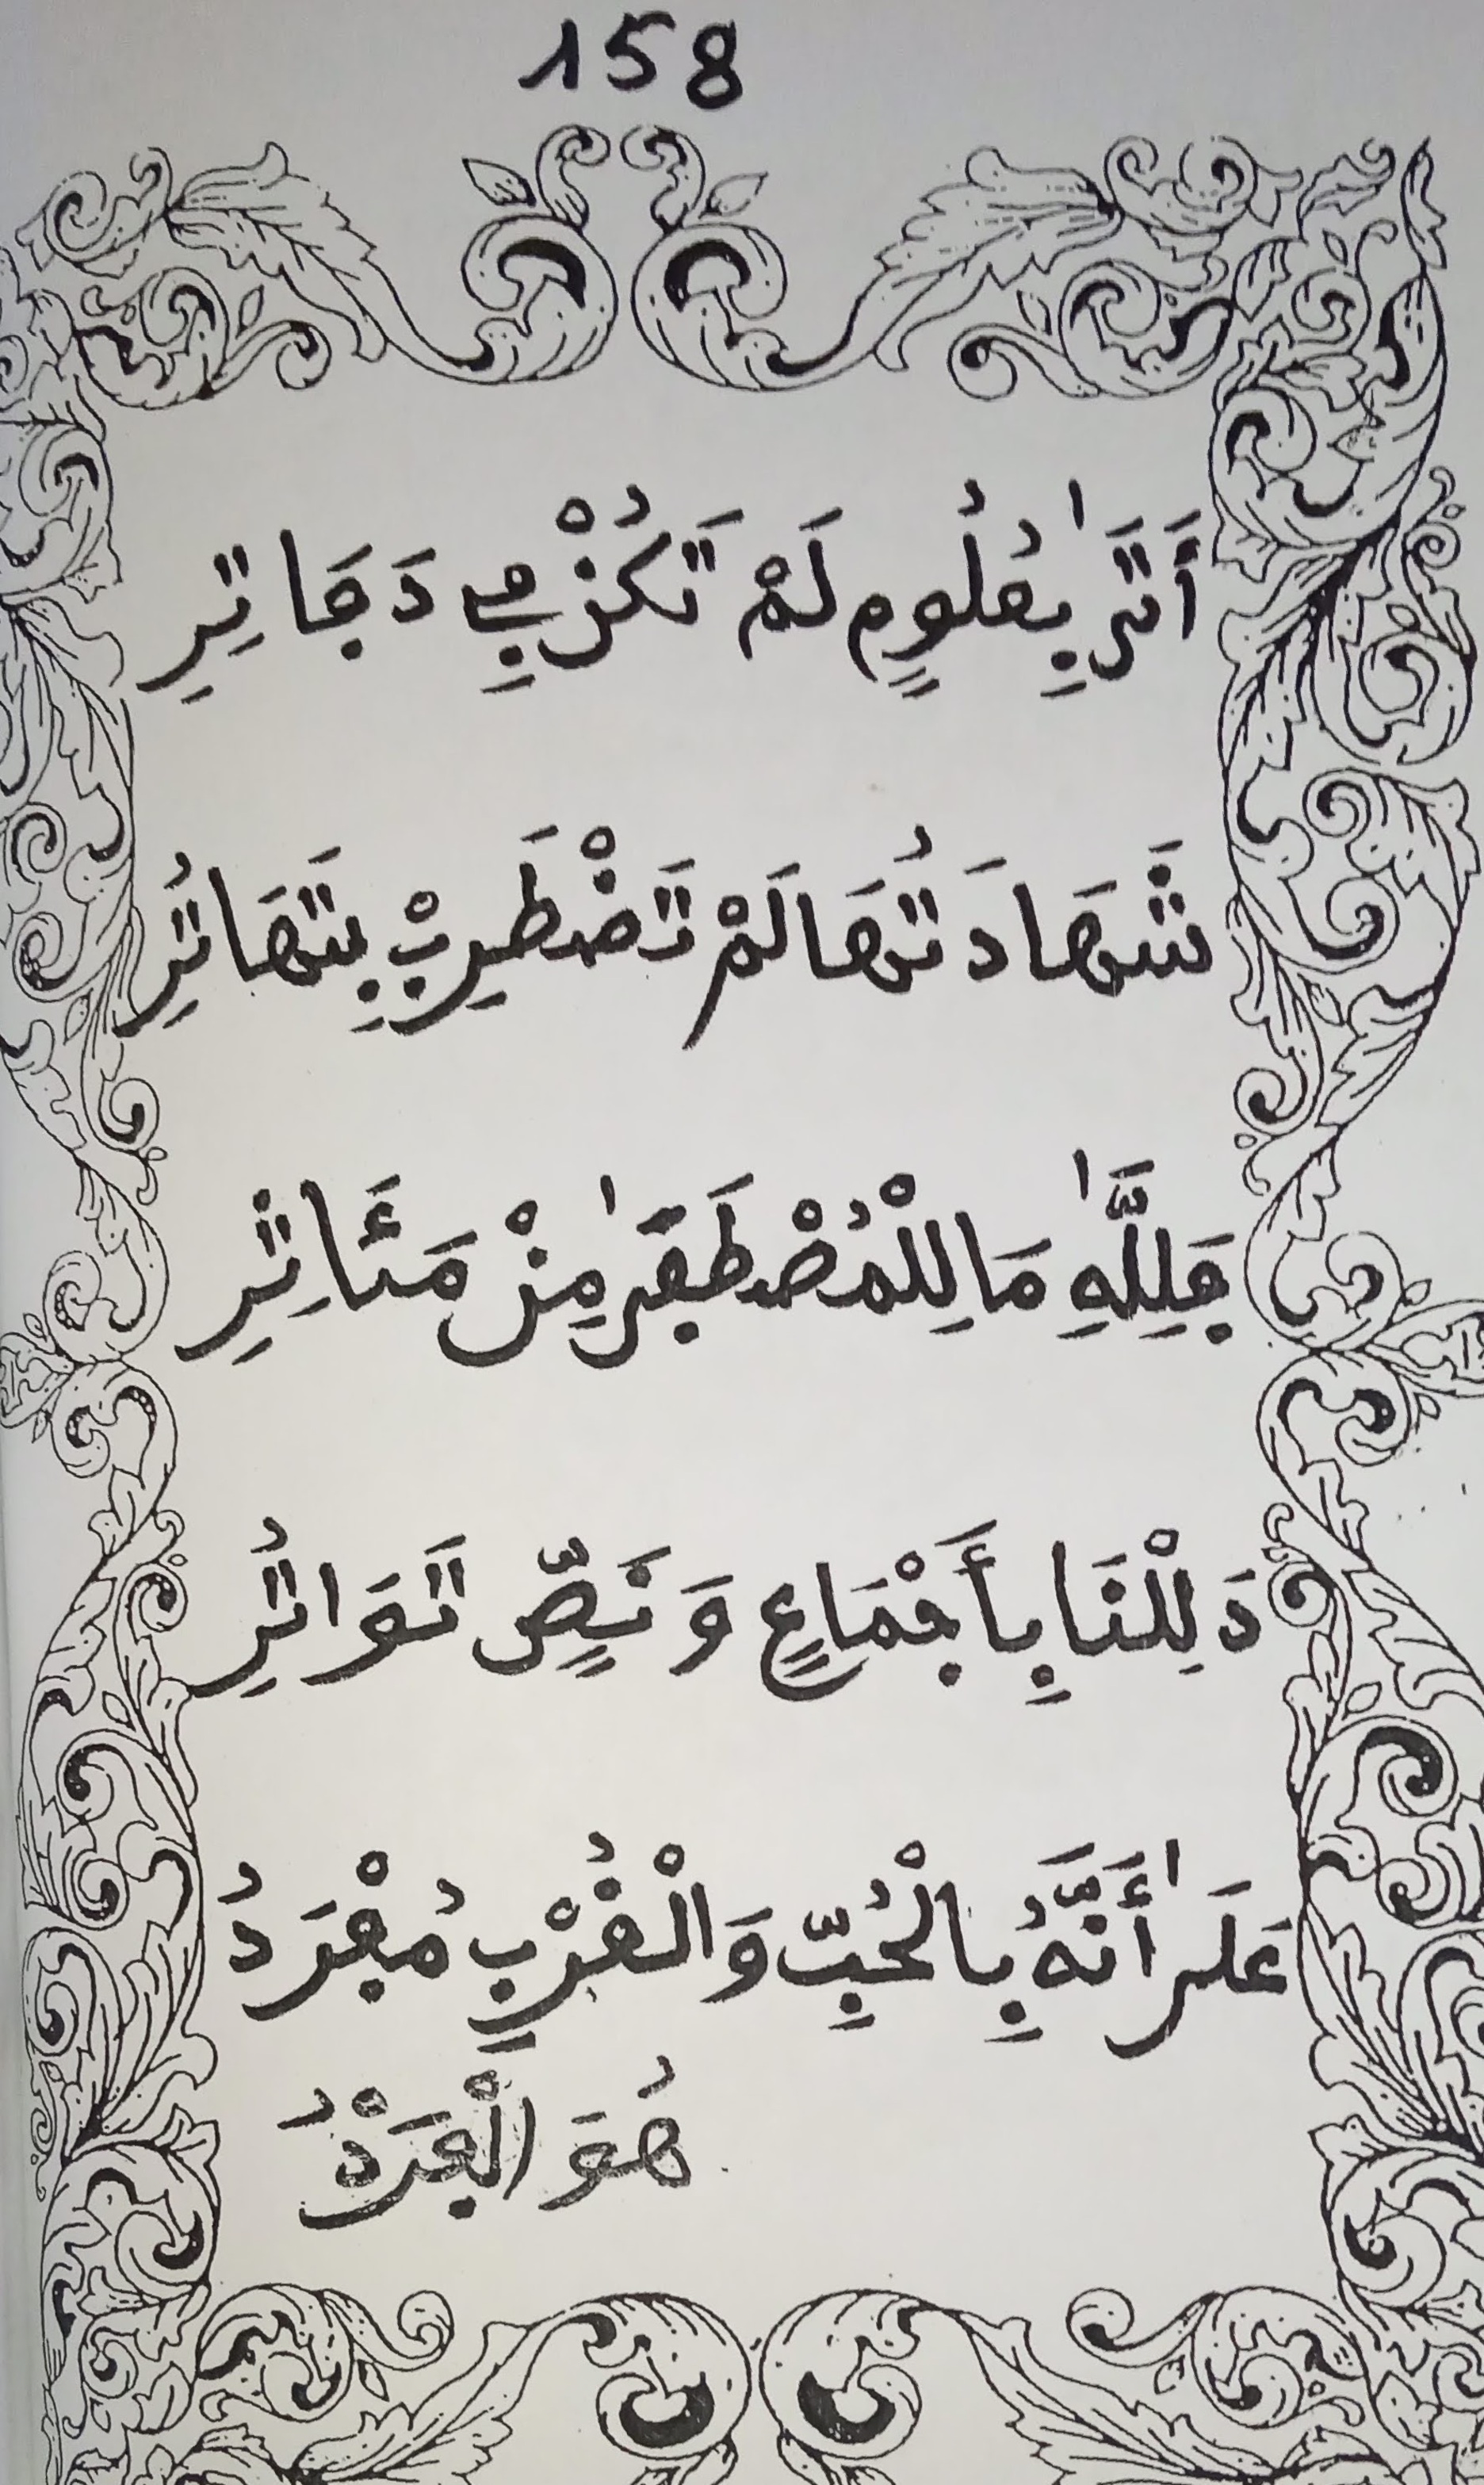 158
أَتَىٰ بِعُلُومٍ لَمْ تَكُنْ فِي دَفَاتِرِ
شَهَادَتُهَا لَمْ تَضْطَرِبْ بِتَهَاتُرِ
فَلِلَّهِ مَا لِلْمُصْطَفَىٰ مِنْ مَئَاثِرِ
دَلِلْنَا بِأَجْمَاعٍ وَنَصِّ تَوَاتُرِ
عَلَىٰ أَنَّهُ بِالْحُبِّ وَالْقُرْبِ مُفْرَدُ
هُوَ الْفَرْدُ